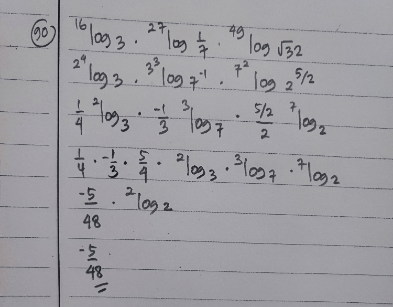 90 ¹⁶log 3 · ²⁷log 1/7 · ⁴⁹log √32
2⁴log 3 · 3³log 7⁻¹ · 7²log 2^5/2
1/4 ²log 3 · -1/3 ³log 7 · (5/2)/2 ⁷log 2
1/4 · -1/3 · 5/4 · ²log 3 · ³log 7 · ⁷log 2
-5/48 · ²log 2
-5/48